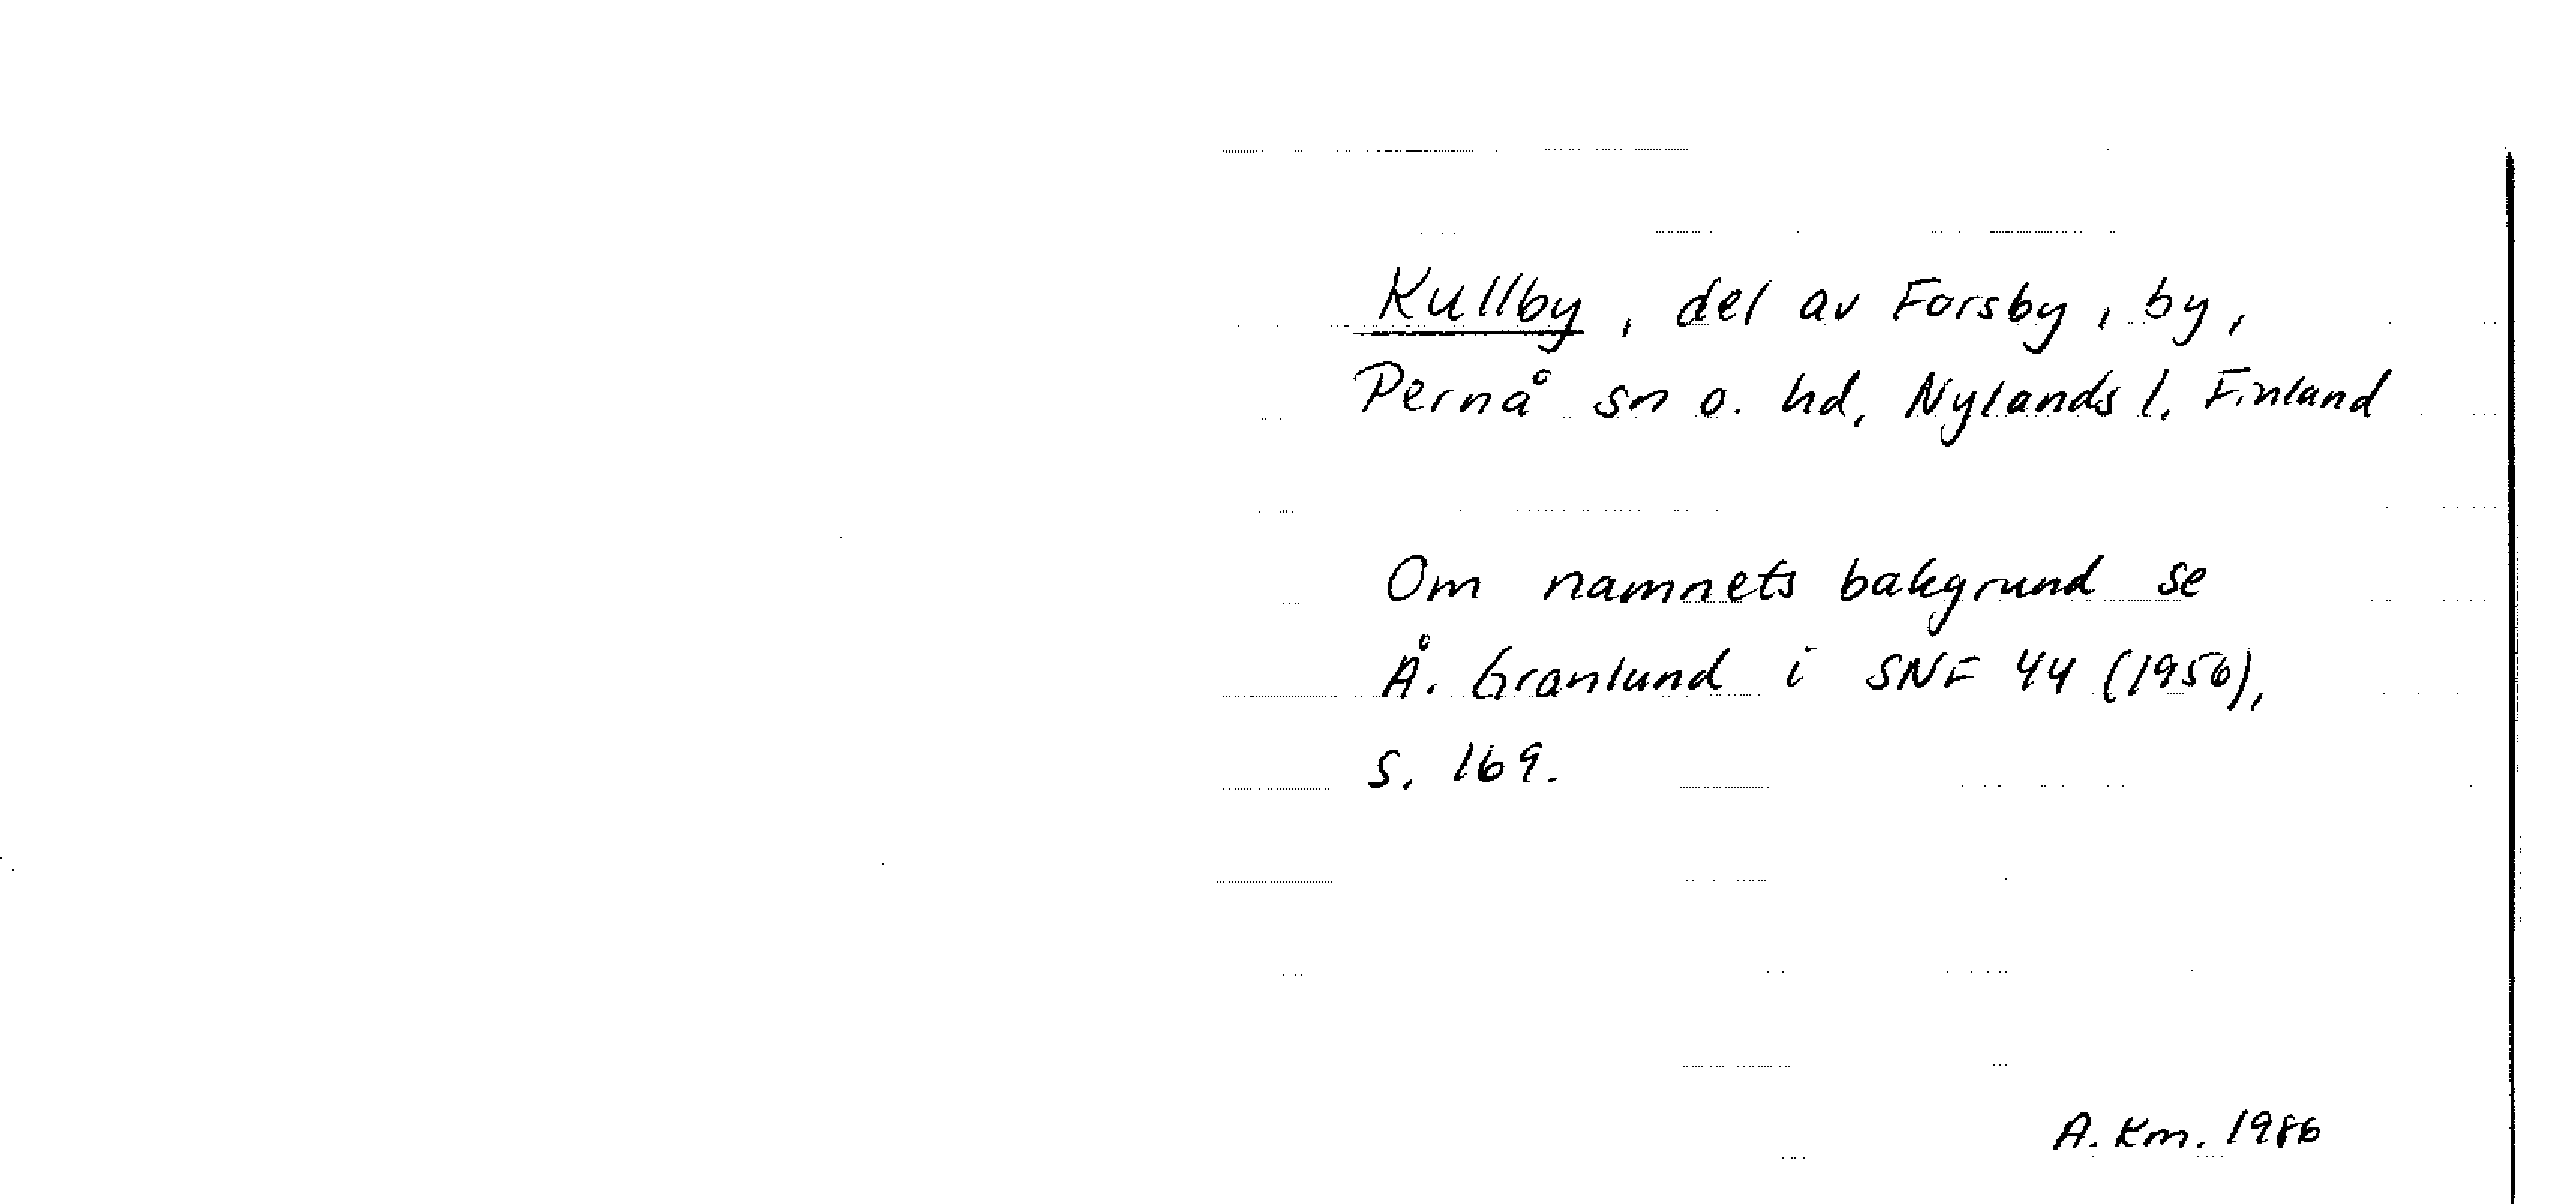 Kullby, del av Forsby, by,
Pernå sn o. hd, Nylands l. Finland
Om namnets bakgrund se
Å. Granlund i SNF 44 (1956),
s. 169.
A. Km. 1986